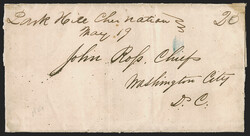 Park Hill Cher. nation
May 19
John Ross, Chief
Washington City
D. C.